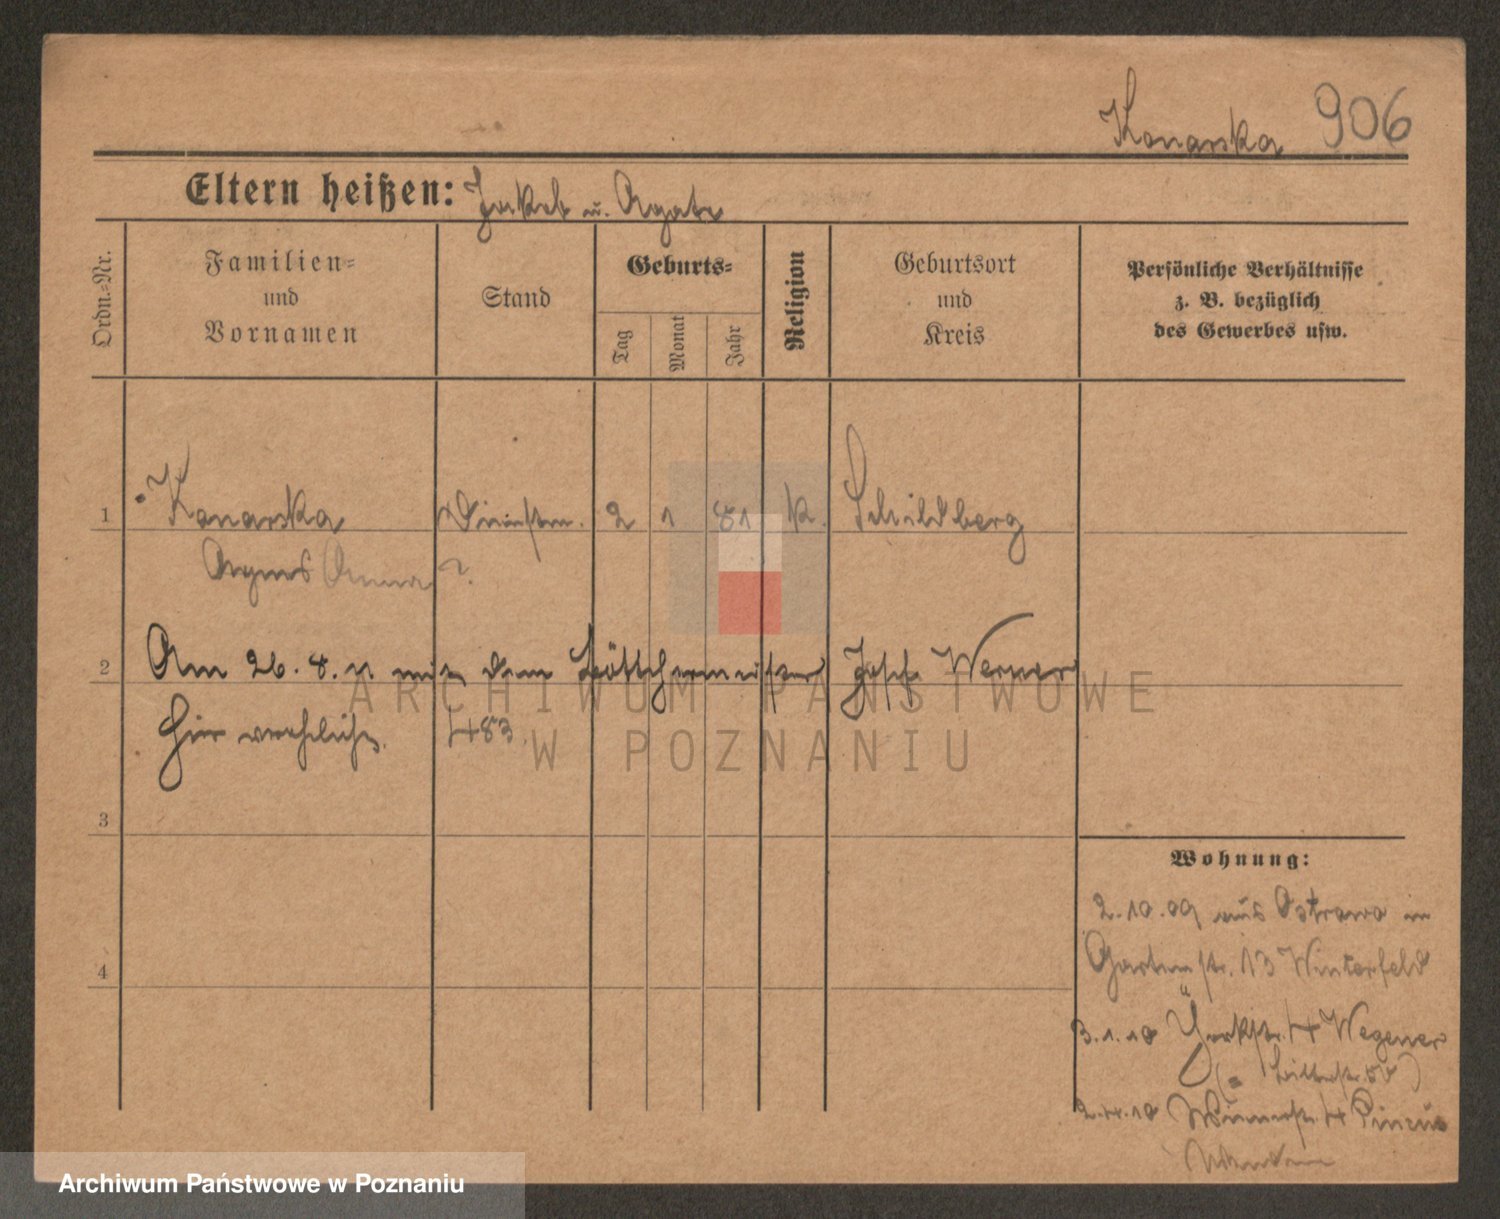 Konarska 906
Eltern heißen: Jakob u. Agate
Ordn.-Nr.
Familien-
und
Vornamen
Stand
Geburts-
Tag
Monat
Jahr
Religion
Geburtsort
und
Kreis
Persönliche Verhältnisse
z. B. bezüglich
des Gewerbes usw.
1 Konarska Dienstm. 2 1 81 k. Schildberg
Agnes Anna ?
2 Am 26. 4. 11 mit dem Böttchermeister Josef Werner
hier verehelicht. 483.
3
4
Wohnung:
2.10.09 aus Ostrowo in
Gartenstr. 13 Winterfeld
3.1.10 Yorkstr. 4 Wegener
2.4.10 Wienerstr. 4 Pincus
ARCHIWUM PAŃSTWOWE
W POZNANIU
Archiwum Państwowe w Poznaniu